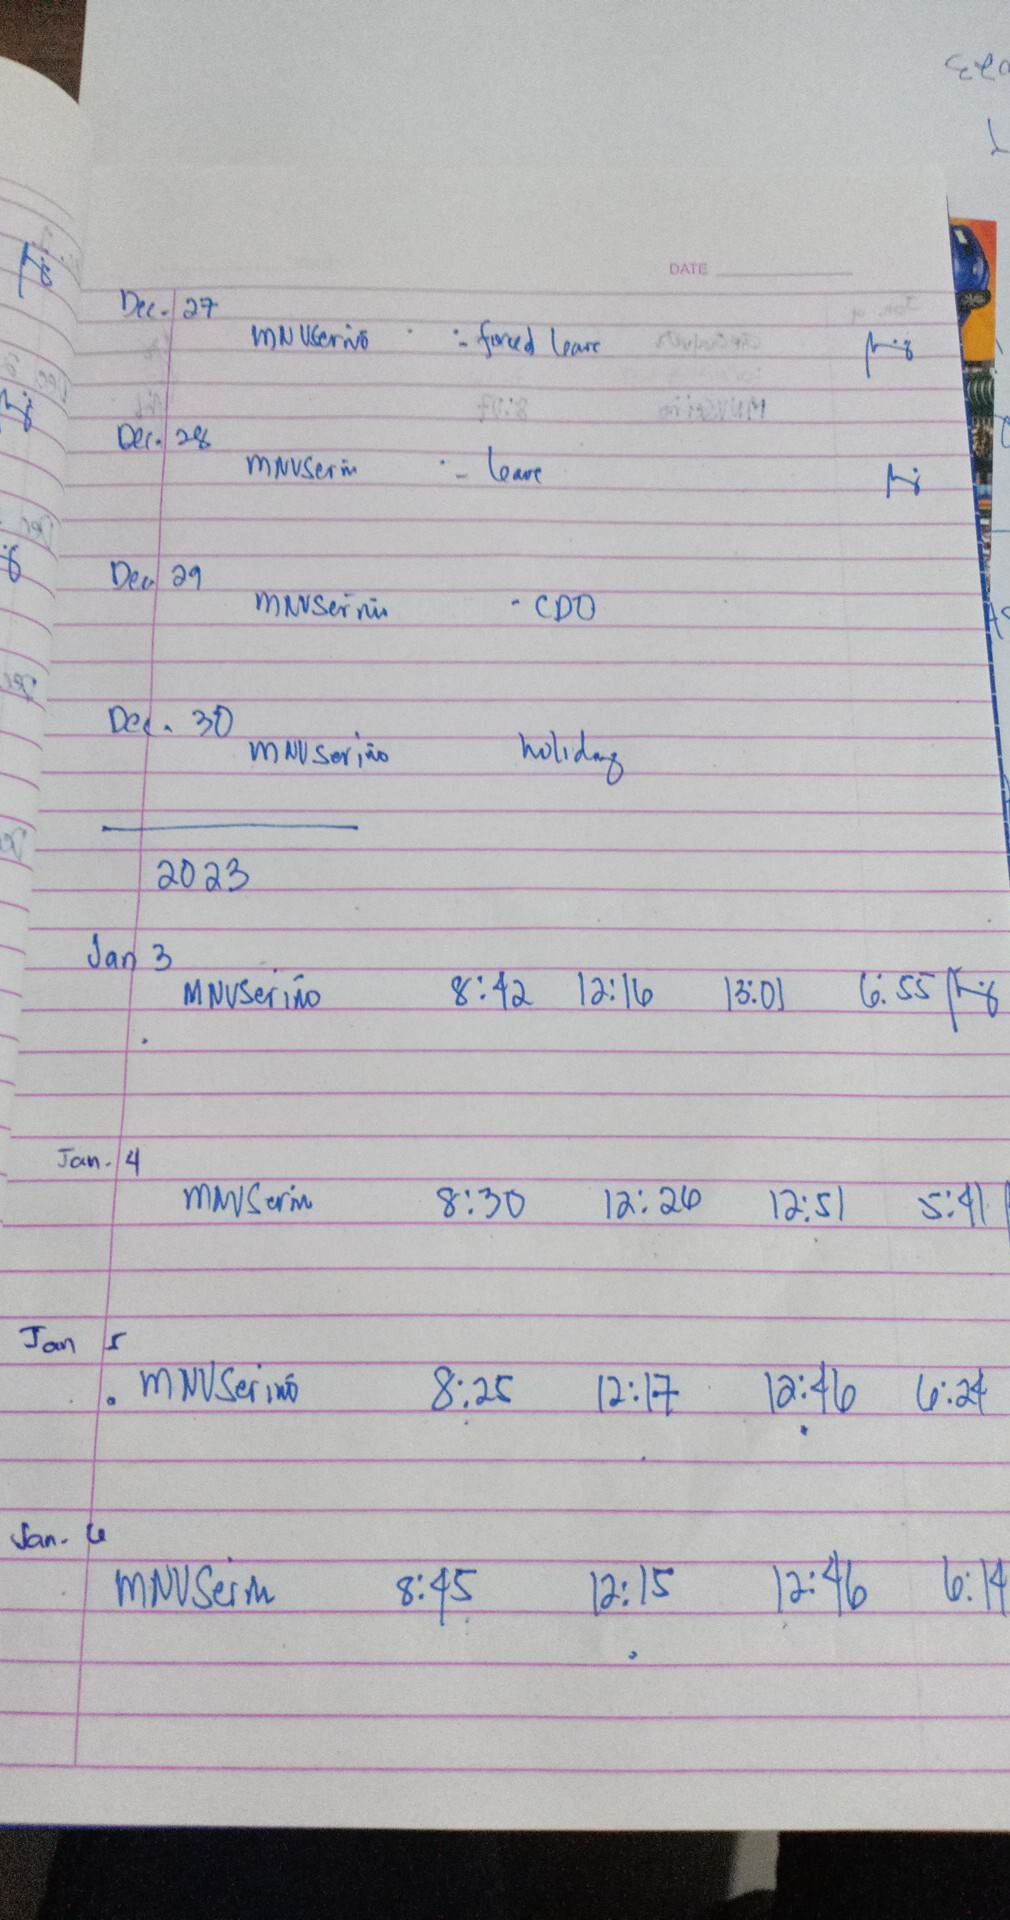 DATE
Dec. 27
MNVSeriño :- forced leave
Dec. 28
MNVSeriñ :- leave
Dec 29
MNVSeriño - CDO
Dec. 30
MNVSeriño holiday
2023
Jan 3
MNVSeriño 8:42 12:16 13:01 6:55
Jan. 4
MNVSeriñ 8:30 12:26 12:51 5:41
Jan 5
MNVSeriño 8:25 12:17 12:46 6:24
Jan. 6
MNVSeriñ 8:45 12:15 12:46 6:14